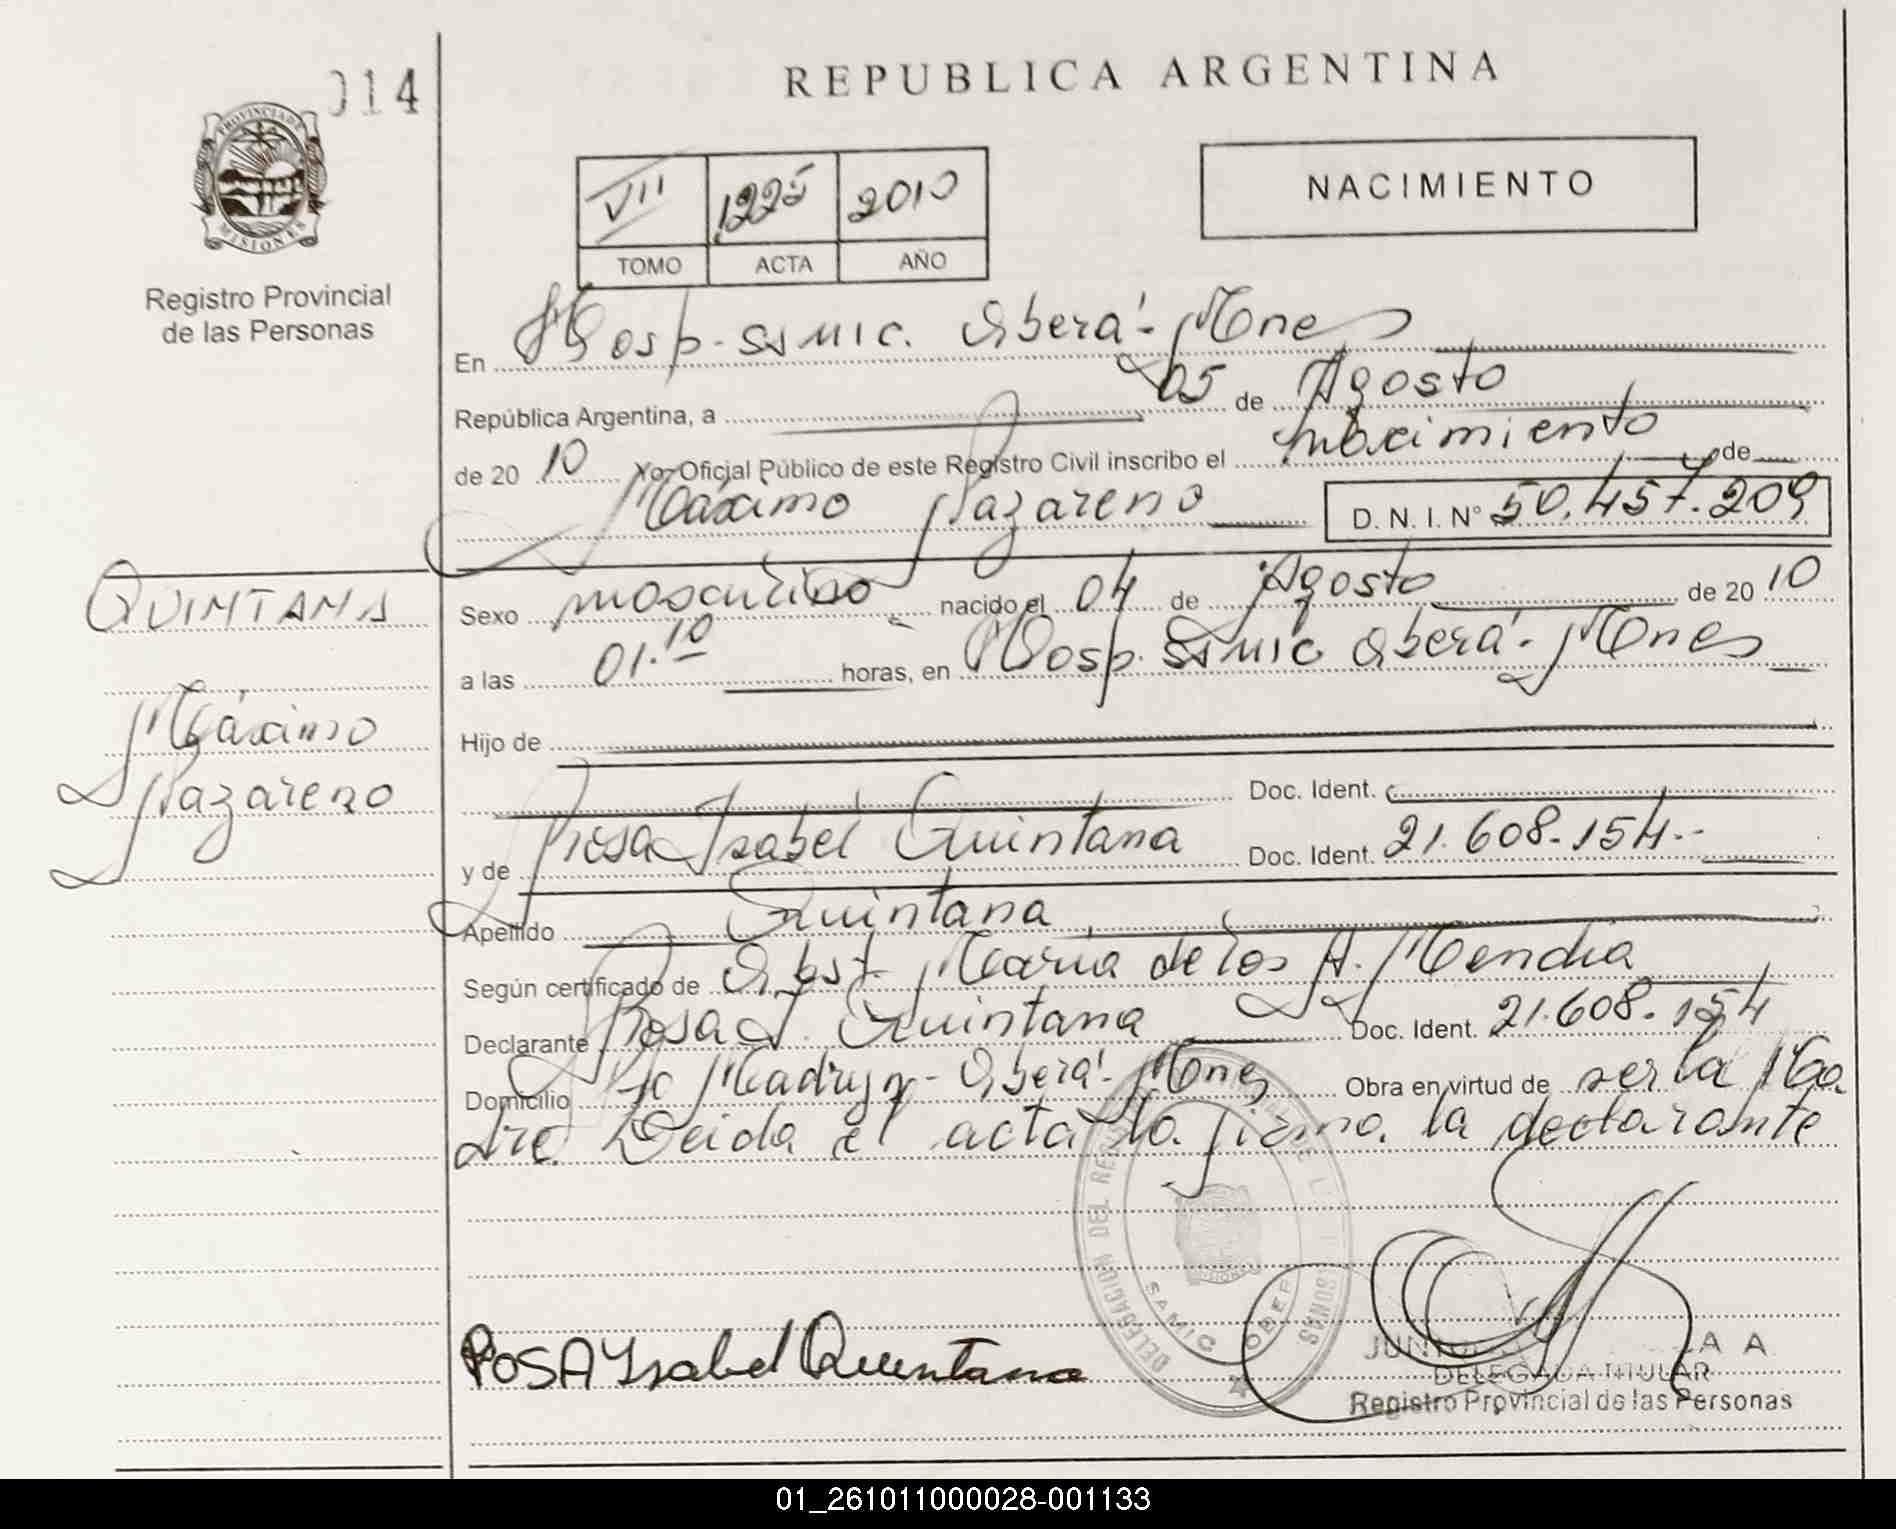 014
REPUBLICA ARGENTINA
PROVINCIA DE
MISIONES
Registro Provincial
de las Personas
VII 1225 2010
TOMO ACTA AÑO
NACIMIENTO
En Hosp. SAMIC. Oberá - Mnes
República Argentina, a 05 de Agosto
de 2010 Yo, Oficial Público de este Registro Civil inscribo el nacimiento de
Máximo Nazareno D. N. I. N° 50.457.209
QUINTANA
Máximo
Nazareno
Sexo masculino nacido el 04 de Agosto de 2010
a las 01.10 horas, en Hosp. SAMIC Oberá - Mnes
Hijo de
Doc. Ident.
y de Rosa Isabel Quintana Doc. Ident. 21.608.154.-
Apellido Quintana
Según certificado de Obst. María de los A.
Declarante Rosa I. Quintana Doc. Ident. 21.608.154
Domicilio Madryn - Oberá - Mnes Obra en virtud de ser la Ma
dre. Leida el acta la firma la declarante
DELEGACION DEL
SAMIC OBER
ROSA Ysabel Quintana
A A
DELEGADA TITULAR
Registro Provincial de las Personas
01_261011000028-001133